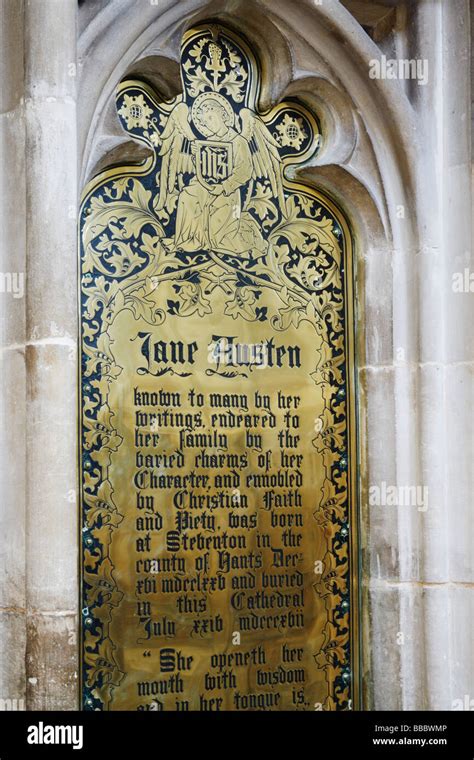 IHS
Jane Austen
known to many by her
writings, endeared to
her family by the
varied charms of her
Character, and ennobled
by Christian Faith
and Piety, was born
at Steventon in the
county of Hants Dec
xvi mdcclxxv and buried
in this Cathedral
July xxiv mdcccxvii
"She openeth her
mouth with wisdom
and in her tongue is
alamy
Image ID: BBBWMP
www.alamy.com